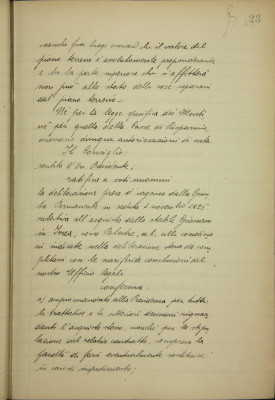 neanche fuor luogo ovviare che il valore del
piano terreno è assolutamente preponderante
e che la parte superiore che si affitterà
non può allo stato delle cose separarsi
dal piano terreno.
Nè per la legge specifica dei Monti
nè per quella delle Casse di Risparmio,
occorrono dunque autorizzazioni di sorta.
Il Consiglio
sentito l'On. Presidente,
ratifica a voti unanimi
la deliberazione presa d'urgenza dalla Giunta
Permanente in seduta 2 novembre 1925
relativa all'acquisto dello stabile
in Ivrea, corso, n. 1, alle condizioni
indicate nella deliberazione stessa da completarsi
con le conclusioni del
nostro Ufficio legale
conferma
a) ampio mandato alla Presidenza per tutte
le trattative e le ulteriori decisioni riguardanti
l'acquisto stesso, nonchè per la stipulazione
del relativo contratto, compresa la
facoltà di farsi eventualmente sostituire
in caso di impedimento;